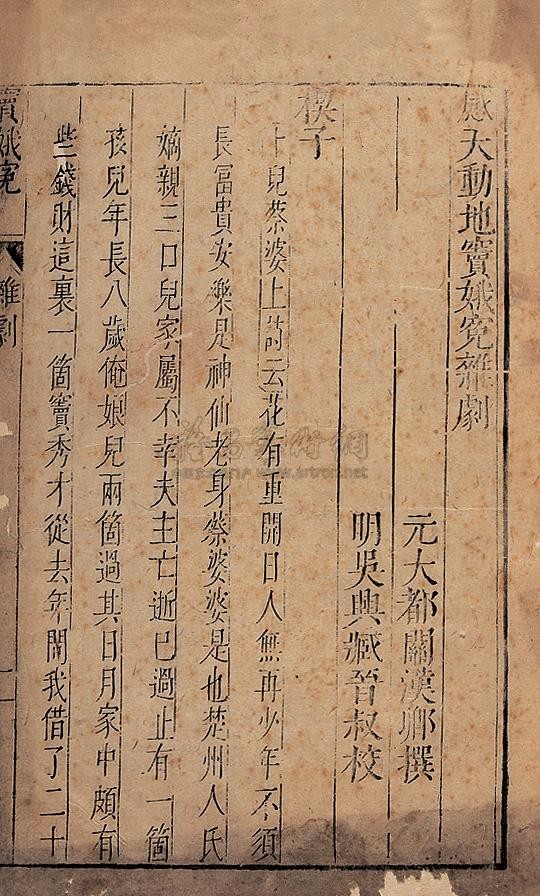 感天動地竇娥冤雜劇
元大都關漢卿撰
明吳興臧晉叔校
楔子
卜兒蔡婆上詩云花有重開日人無再少年不須
長富貴安樂是神仙老身蔡婆婆是也楚州人氏
嫡親三口兒家屬不幸夫主亡逝已過止有一箇
孩兒年長八歲俺娘兒兩箇過其日月家中頗有
些錢財這裏一箇竇秀才從去年間我借了二十
竇娥冤
雜劇
www.artron.net